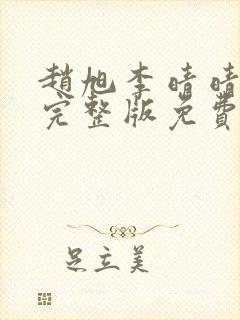 趙旭李晴晴
完整版免費
足立美